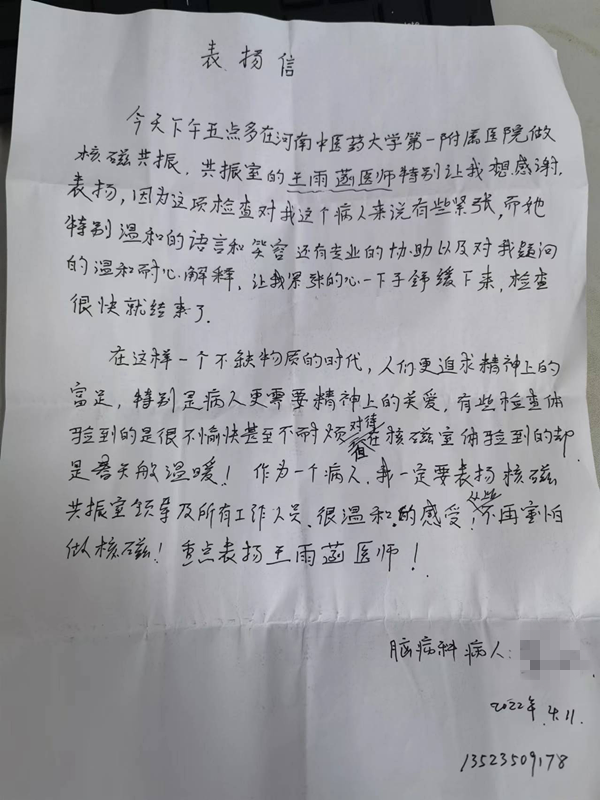 表扬信
今天下午五点多在河南中医药大学第一附属医院做
核磁共振,共振室的王雨菡医师特别让我想感谢,
表扬,因为这项检查对我这个病人来说有些紧张,而她
特别温和的语言和笑容还有专业的协助以及对我疑问
的温和耐心解释,让我紧张的心一下子舒缓下来,检查
很快就结束了.
在这样一个不缺物质的时代,人们更追求精神上的
富足,特别是病人更需要精神上的关爱,有些检查体
验到的是很不愉快甚至不耐烦对待在核磁室体验到的却
是春天般温暖!作为一个病人,我一定要表扬核磁
共振室领导及所有工作人员.很温和的感受!从此不再害怕
做核磁!重点表扬王雨菡医师!
脑病科病人:
2022年.4.11
13523509178